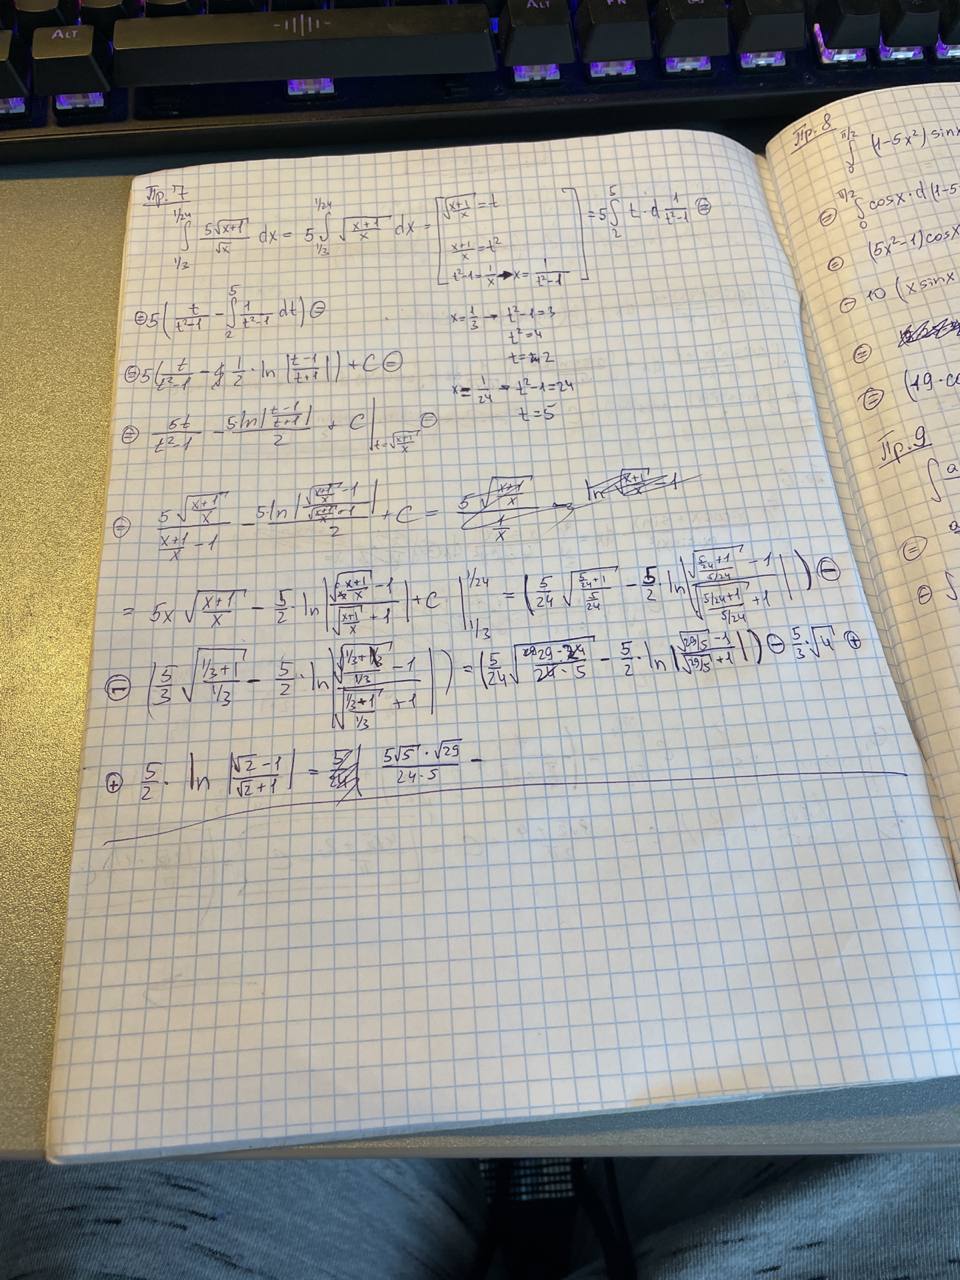 ALT
ALT
FN
Пр. 7
∫_{1/3}^{1/24} 5√(x+1)/√x dx = 5 ∫_{1/3}^{1/24} √((x+1)/x) dx = [ √((x+1)/x) = t
(x+1)/x = t²
t²-1 = 1/x → x = 1/(t²-1) ] = 5 ∫_2^5 t · d 1/(t²-1) ⊜
⊜ 5 ( t/(t²-1) - ∫_2^5 1/(t²-1) dt ) ⊜
x = 1/3 → t²-1 = 3
t² = 4
t = 2
⊜ 5 ( t/(t²-1) - 1/2 · ln |(t-1)/(t+1)| ) + C ⊜
x = 1/24 → t²-1 = 24
t = 5
⊜ 5t/(t²-1) - 5 ln |(t-1)/(t+1)| / 2 + C |_{t=√((x+1)/x)} ⊜
⊜ 5√((x+1)/x) / ((x+1)/x - 1) - 5 ln |(√((x+1)/x) - 1)/(√((x+1)/x) + 1)| / 2 + C =
= 5x √((x+1)/x) - 5/2 · ln |(√((x+1)/x) - 1)/(√((x+1)/x) + 1)| + C |_{1/3}^{1/24} = ( 5/24 √((5/24+1)/(5/24)) - 5/2 · ln |(√((5/24+1)/(5/24)) - 1)/(√((5/24+1)/(5/24)) + 1)| ) ⊖
⊖ ( 5/3 √((1/3+1)/(1/3)) - 5/2 · ln |(√((1/3+1)/(1/3)) - 1)/(√((1/3+1)/(1/3)) + 1)| ) = ( 5/24 √((29·24)/(24·5)) - 5/2 · ln |(√(29/5) - 1)/(√(29/5) + 1)| ) ⊖ 5/3 · √4 ⊕
⊕ 5/2 · ln |(√2 - 1)/(√2 + 1)| = (5√5 · √29)/(24·5) -
Пр. 8
(1-5x²) sinx
⊜ ∫_0^{π/2} cosx · d(1-5
⊜ (5x²-1)cosx
⊖ 10 (x sinx
⊜
⊜ (19·co
Пр. 9
∫ a
⊜ a
⊖ ∫